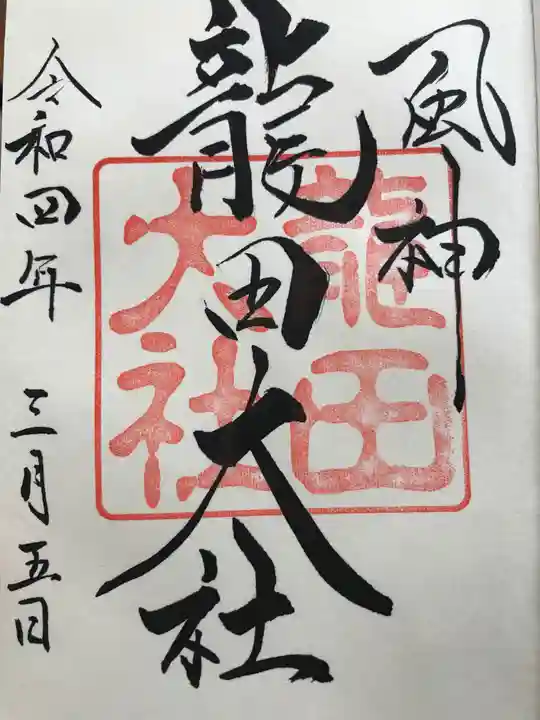 風神
龍田大社
龍田
大社
令和四年 三月五日